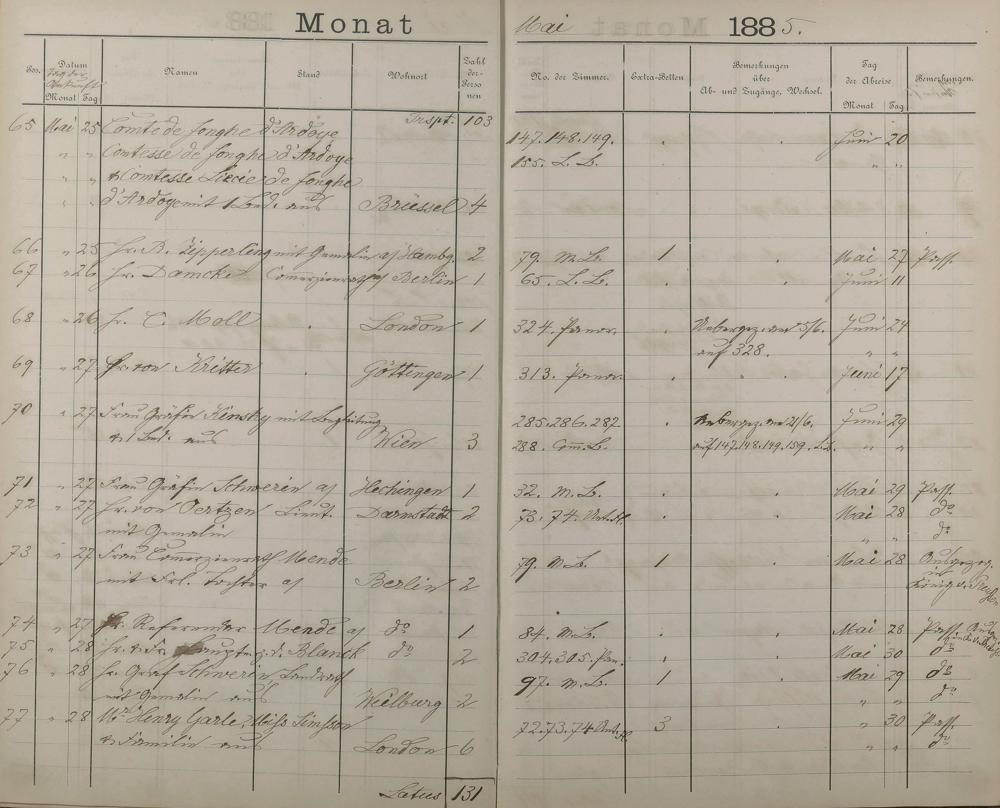 Monat Mai 1885.
Datum
Tag der Ankunft
Monat Tag Namen Stand Wohnort Zahl der Personen No. der Zimmer. Extra-Betten Bemerkungen über Ab- und Zugänge, Wechsel. Tag der Abreise Monat Tag Bemerkungen.
Trspt. 103
65 Mai 25 Comte de Jonghe d'Ardoye 147.148.149. Juni 20
" " Contesse de Jonghe d'Ardoye 155. L. B. " "
" " & Comtesse Lucie de Jonghe
" " d'Ardoye mit 1 Bed. aus Brüssel 4
66 " 25 Hr. B. Zipperling mit Gemalin a/ Hambg. 2 79. M.B. 1 Mai 27 Pass.
67 " 26 Hr. Damcke Commerzienrath a/ Berlin 1 65. L. B. Juni 11
68 " 26 Hr. C. Moll London 1 324. Panor. Uebergez. am 5/6. Juni 24
auf 328. " "
69 " 27 Fr. von Kritter Göttingen 1 313. Panor. " Juni 17
70 " 27 Frau Gräfin Kinsky mit Begleitung 285.286.287. Uebergez. am 21/6. Juni 29
& Bed. aus Wien 3 288. Com.B. auf 147.148.149.159. L.B. " "
71 " 27 Frau Gräfin Schwerin a/ Hechingen 1 32. M.B. Mai 29 Pass.
72 " 27 Hr. von Oertzen Lieut. Darmstadt 2 73.74. Mai 28 do
mit Gemalin " " do
73 " 27 Frau Commerzienrath Mende 79. M.B. 1 Mai 28 Ausgezog.
mit Frl. Tochter a/ Berlin 2 König v. Preußen
74 " 27 Hr. Referendar Mende a/ do 1 84. M.B. Mai 28 Pass.
75 " 28 Hr. & Fr. Hauptm. v. Blanck do 2 304.305. Pan. Mai 30 do
76 " 28 Hr. Graf Schwerin, Landrath 97. M.B. 1 Mai 29 do
mit Gemalin aus Weilburg 2 " " do
77 " 28 Mr. Henry Garle Miss Simpson 72.73.74 3 " 30 Pass.
& Familie aus London 6 " " do
Latus 131